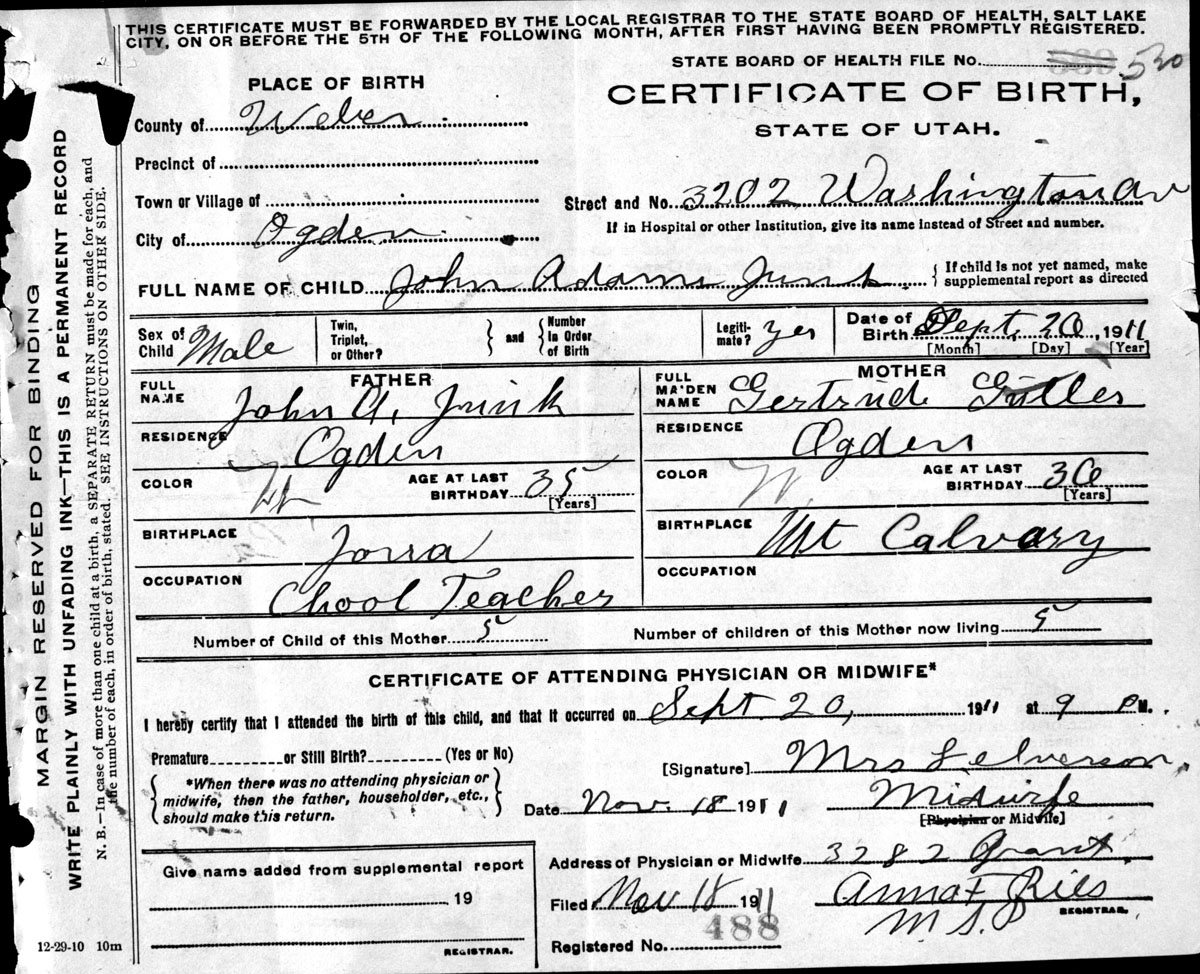 THIS CERTIFICATE MUST BE FORWARDED BY THE LOCAL REGISTRAR TO THE STATE BOARD OF HEALTH, SALT LAKE
CITY, ON OR BEFORE THE 5TH OF THE FOLLOWING MONTH, AFTER FIRST HAVING BEEN PROMPTLY REGISTERED.
STATE BOARD OF HEALTH FILE No. 530
PLACE OF BIRTH
CERTIFICATE OF BIRTH,
STATE OF UTAH.
County of Weber
Precinct of
Town or Village of
Street and No. 3202 Washington Av
City of Ogden
If in Hospital or other Institution, give its name instead of Street and number.
FULL NAME OF CHILD John Adams Junk { If child is not yet named, make supplemental report as directed
Sex of Child Male
Twin, Triplet, or Other? } and { Number in Order of Birth
Legitimate? yes
Date of Birth Sept, 20, 1911
[Month] [Day] [Year]
FATHER
FULL NAME John A, Junk
RESIDENCE Ogden
COLOR W
AGE AT LAST BIRTHDAY 35
[Years]
BIRTHPLACE
OCCUPATION Chool Teacher
MOTHER
FULL MAIDEN NAME Gertrude
RESIDENCE Ogden
COLOR W
AGE AT LAST BIRTHDAY 30
[Years]
BIRTHPLACE Mt Calvary
OCCUPATION
Number of Child of this Mother 5
Number of children of this Mother now living 5
CERTIFICATE OF ATTENDING PHYSICIAN OR MIDWIFE*
I hereby certify that I attended the birth of this child, and that it occurred on Sept. 20, 1911 at 9 PM.
Premature or Still Birth? (Yes or No)
*When there was no attending physician or
midwife, then the father, householder, etc.,
should make this return.
[Signature] Mrs
Date Nov. 18 1911
Midwife
[Physician or Midwife]
Address of Physician or Midwife 3282 Grant.
Give name added from supplemental report
19
REGISTRAR.
Filed Nov 18 1911
Anna F Ries
M.S.P
REGISTRAR.
488
Registered No.
12-29-10 10m
MARGIN RESERVED FOR BINDING
WRITE PLAINLY WITH UNFADING INK—THIS IS A PERMANENT RECORD
N. B.—In case of more than one child at a birth, a SEPARATE RETURN must be made for each, and
the number of each, in order of birth, stated. SEE INSTRUCTIONS ON OTHER SIDE.